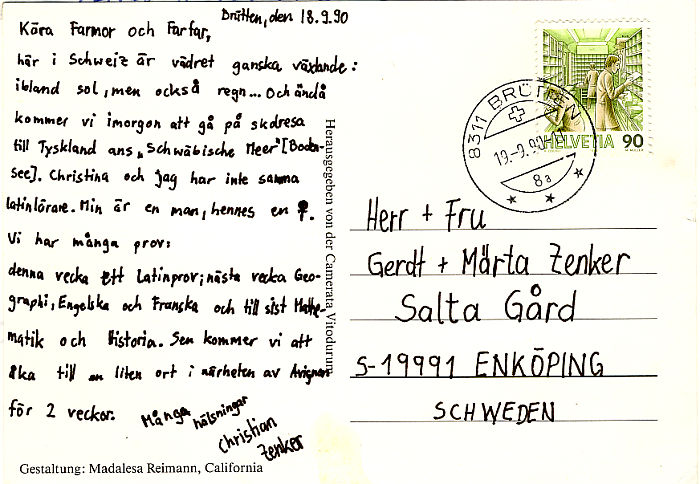 Brütten, den 18.9.90
Kära Farmor och Farfar,
här i Schweiz är vädret ganska växlande:
ibland sol, men också regn... Och ändå
kommer vi imorgon att gå på skolresa
till Tyskland ans „Schwäbische Meer" [Boden-
see]. Christina och jag har inte samma
latinlärare. Min är en man, hennes en ♀.
Vi har många prov:
denna vecka ett Latinprov; nästa vecka Geo-
graphi, Engelska och Franska och till sist Mathe-
matik och Historia. Sen kommer vi att
åka till en liten ort i närheten av Avignon
för 2 veckor.
Många hälsningar
Christian
Zenker
Gestaltung: Madalesa Reimann, California
Herausgegeben von der Camerata Vitodurum
8311 BRÜTTEN
19.-9.90
8a
HELVETIA 90
Herr + Fru
Gerdt + Märta Zenker
Salta Gård
S-19991 ENKÖPING
SCHWEDEN